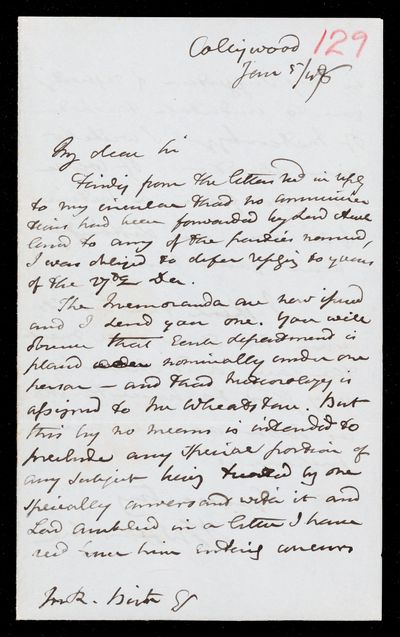 Collingwood 129
Jan 5/48
My dear Sir
Finding from the letters recd in reply
to my circular that no communica
tions had been forwarded by Lord Auck
land to any of the parties named,
I was obliged to defer replying to yours
of the 27th Dec.
The Memoranda are now issued
and I send you one. You will
observe that Each department is
placed nominally under one
person – and that Meteorology is
assigned to Mr Wheatstone. But
this by no means is intended to
preclude any special portion of
any subject being treated by one
specially conversant with it and
Lord Auckland in a letter I have
recd from him entirely concurs
Birt Esq